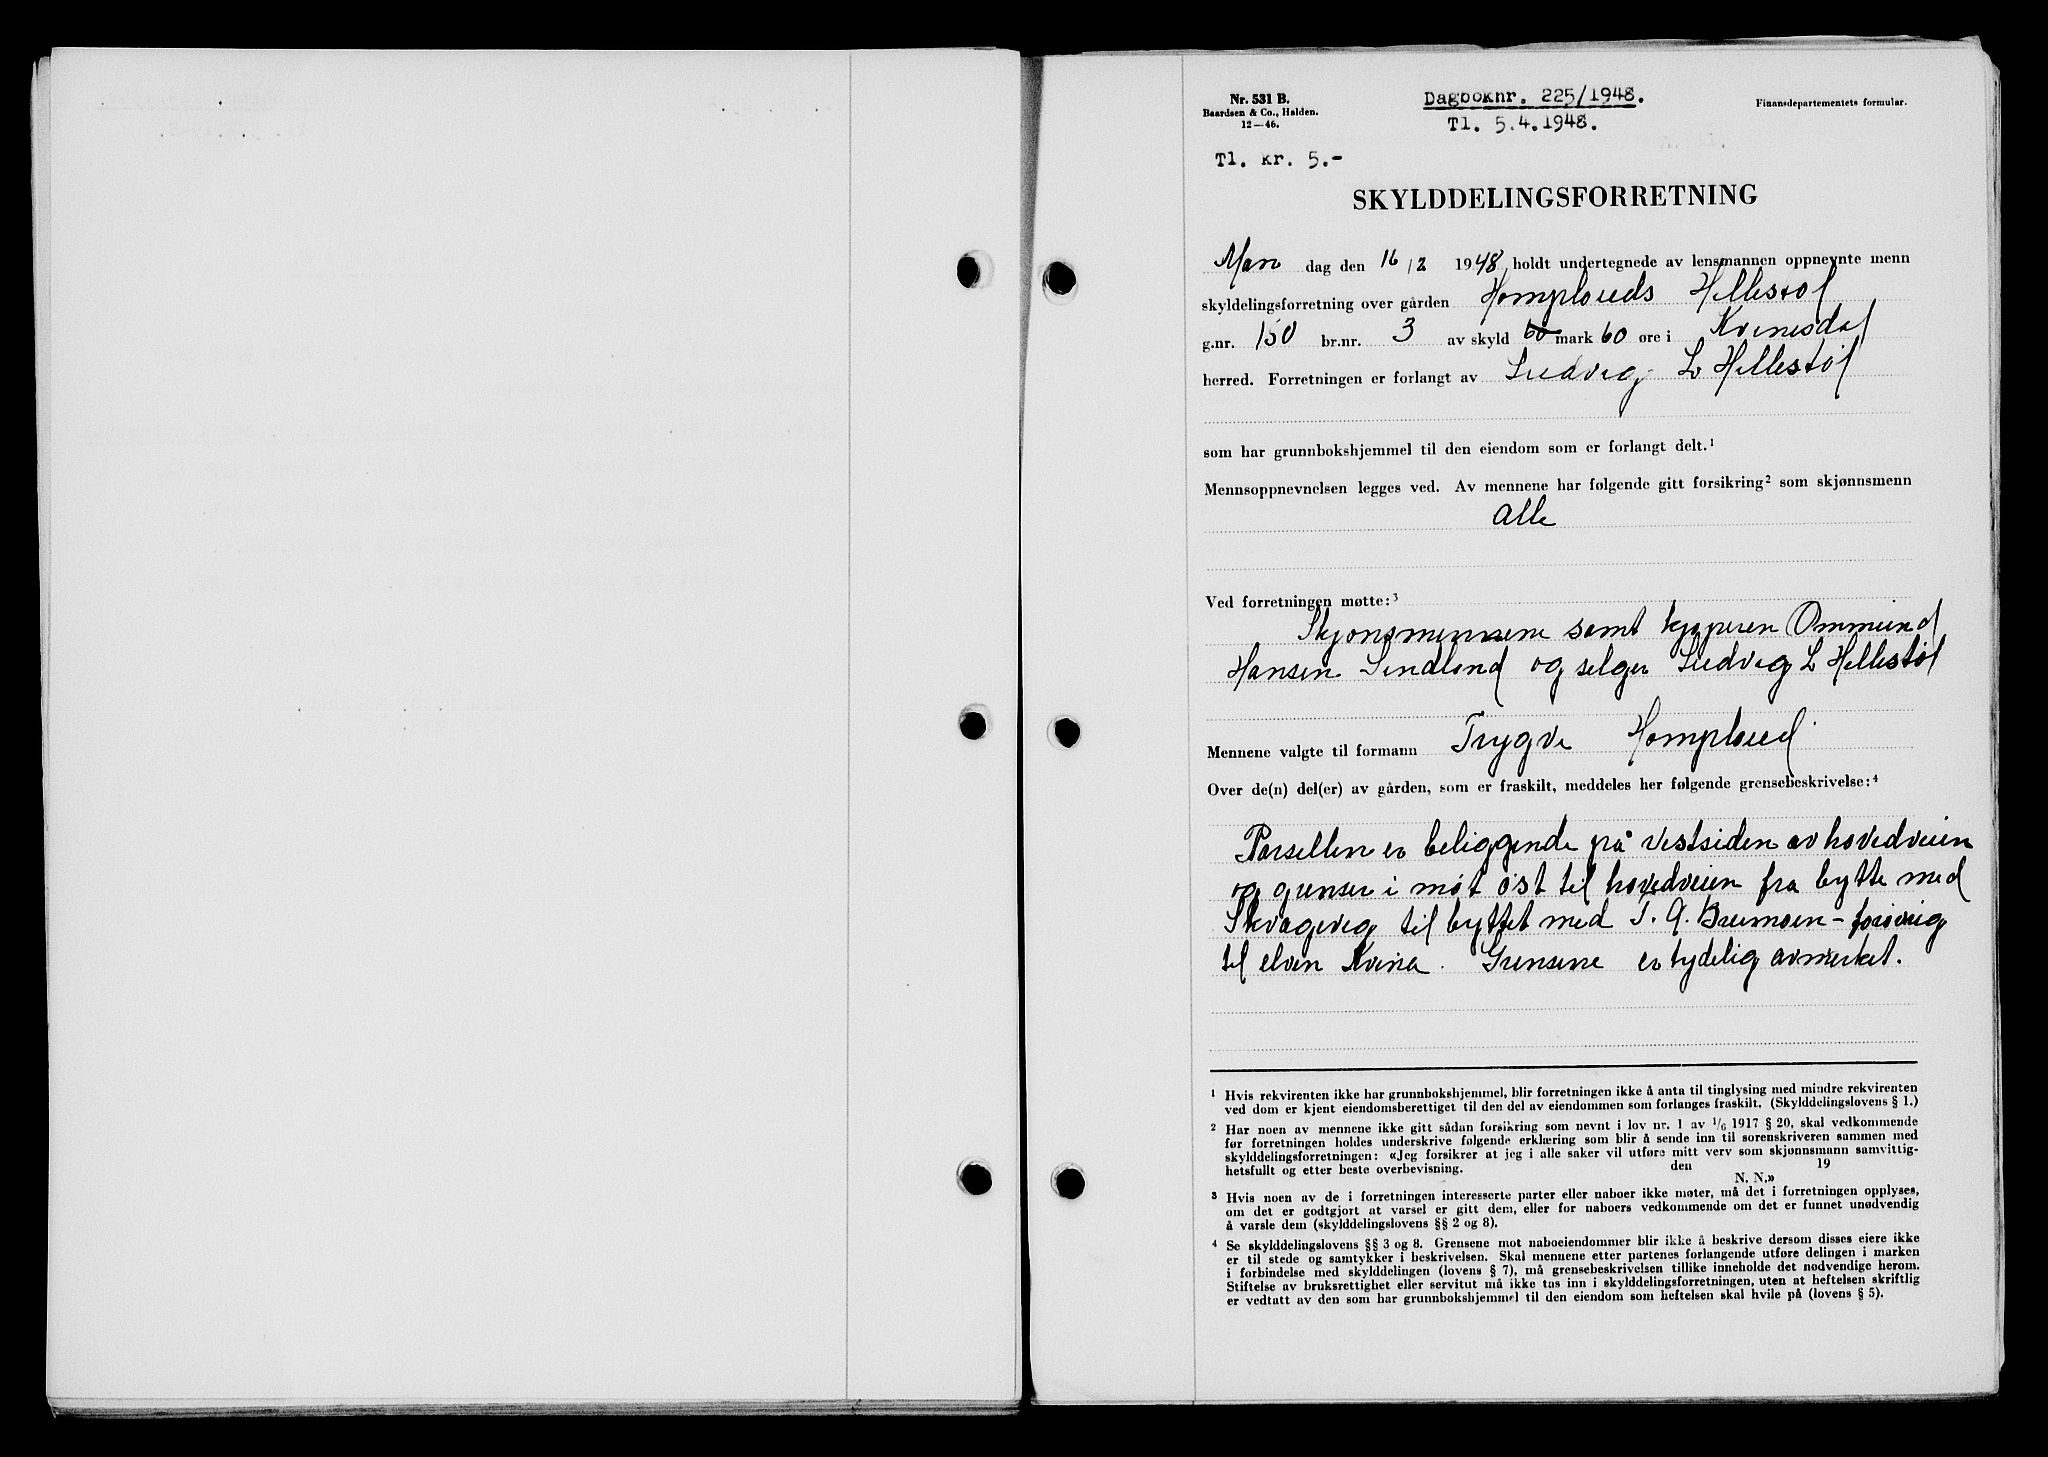 Nr. 531 B.
Baardsen & Co., Halden.
12—46.
Dagboknr. 225/1948.
Tl. 5.4.1948.
Finansdepartementets formular.
Tl. kr. 5.-
SKYLDDELINGSFORRETNING
Man dag den 16/2 1948 holdt undertegnede av lensmannen oppnevnte menn
skyldelingsforretning over gården Homplouds Hellestøl
g.nr. 150 br.nr. 3 av skyld 60 mark 60 øre i Kvinesdal
herred. Forretningen er forlangt av Ludvig L Hellestøl
som har grunnbokshjemmel til den eiendom som er forlangt delt.¹
Mennsoppnevnelsen legges ved. Av mennene har følgende gitt forsikring² som skjønnsmenn
alle
Ved forretningen møtte:³
Skjønsmennene samt kjøperen Ommund
Hansen Sindland og selger Ludvig L Hellestøl
Mennene valgte til formann Trygve Homploud
Over de(n) del(er) av gården, som er fraskilt, meddeles her følgende grensebeskrivelse:⁴
Parsellen er beliggende på vestsiden av hovedveien
og grenser i møt øst til hovedveien fra bytte med
til byttet med T. A. Bremoen - forøvrig
til elven Kvina. Grensene er tydelig avmerket.
¹ Hvis rekvirenten ikke har grunnbokshjemmel, blir forretningen ikke å anta til tinglysing med mindre rekvirenten
ved dom er kjent eiendomsberettiget til den del av eiendommen som forlanges fraskilt. (Skylddelingslovens § 1.)
² Har noen av mennene ikke gitt sådan forsikring som nevnt i lov nr. 1 av 1/6 1917 § 20, skal vedkommende
før forretningen holdes underskrive følgende erklæring som blir å sende inn til sorenskriveren sammen med
skylddelingsforretningen: «Jeg forsikrer at jeg i alle saker vil utføre mitt verv som skjønnsmann samvittig-
hetsfullt og etter beste overbevisning. den 19
N. N.»
³ Hvis noen av de i forretningen interesserte parter eller naboer ikke møter, må det i forretningen opplyses,
om det er godtgjort at varsel er gitt dem, eller for naboers vedkommende om det er funnet unødvendig
å varsle dem (skylddelingslovens §§ 2 og 8).
⁴ Se skylddelingslovens §§ 3 og 8. Grensene mot naboeiendommer blir ikke å beskrive dersom disses eiere ikke
er til stede og samtykker i beskrivelsen. Skal mennene etter partenes forlangende utføre delingen i marken
i forbindelse med skylddelingen (lovens § 7), må grensebeskrivelsen tillike inneholde det nødvendige herom.
Stiftelse av bruksrettighet eller servitut må ikke tas inn i skylddelingsforretningen, uten at heftelsen skriftlig
er vedtatt av den som har grunnbokshjemmel til den eiendom som heftelsen skal hvile på (lovens § 5).